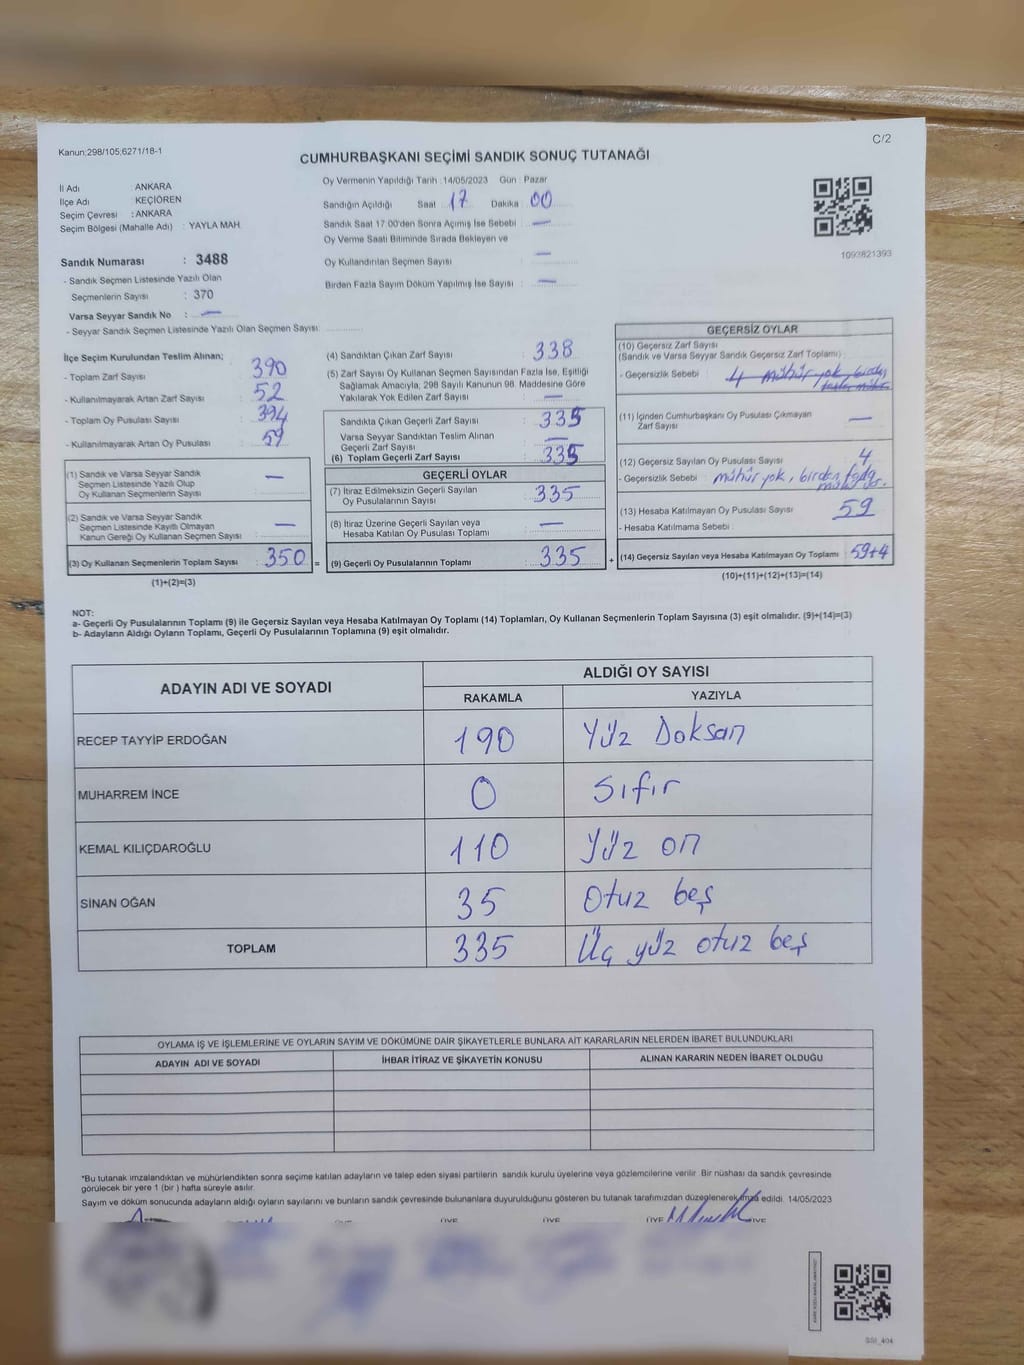 C/2
Kanun;298/105;6271/18-1
CUMHURBAŞKANI SEÇİMİ SANDIK SONUÇ TUTANAĞI
İl Adı : ANKARA
İlçe Adı : KEÇİÖREN
Seçim Çevresi : ANKARA
Seçim Bölgesi (Mahalle Adı) : YAYLA MAH
Sandık Numarası : 3488
- Sandık Seçmen Listesinde Yazılı Olan
Seçmenlerin Sayısı : 370
Varsa Seyyar Sandık No : —
- Seyyar Sandık Seçmen Listesinde Yazılı Olan Seçmen Sayısı:
Oy Vermenin Yapıldığı Tarih :14/05/2023 Gün : Pazar
Sandığın Açıldığı Saat : 17 Dakika : 00
Sandık Saat 17:00'den Sonra Açımış İse Sebebi : —
Oy Verme Saati Bitiminde Sırada Bekleyen ve
Oy Kullandırılan Seçmen Sayısı : —
Birden Fazla Sayım Döküm Yapılmış İse Sayısı : —
1093821393
İlçe Seçim Kurulundan Teslim Alınan;
- Toplam Zarf Sayısı : 390
- Kullanılmayarak Artan Zarf Sayısı : 52
- Toplam Oy Pusulası Sayısı : 394
- Kullanılmayarak Artan Oy Pusulası : 59
(1) Sandık ve Varsa Seyyar Sandık
Seçmen Listesinde Yazılı Olup
Oy Kullanan Seçmenlerin Sayısı : —
(2) Sandık ve Varsa Seyyar Sandık
Seçmen Listesinde Kayıtlı Olmayan
Kanun Gereği Oy Kullanan Seçmen Sayısı : —
(3) Oy Kullanan Seçmenlerin Toplam Sayısı : 350 =
(1)+(2)=(3)
(4) Sandıktan Çıkan Zarf Sayısı : 338
(5) Zarf Sayısı Oy Kullanan Seçmen Sayısından Fazla İse, Eşitliği
Sağlamak Amacıyla, 298 Sayılı Kanunun 98. Maddesine Göre
Yakılarak Yok Edilen Zarf Sayısı : —
Sandıkta Çıkan Geçerli Zarf Sayısı : 335
Varsa Seyyar Sandıktan Teslim Alınan
Geçerli Zarf Sayısı : —
(6) Toplam Geçerli Zarf Sayısı : 335
GEÇERLİ OYLAR
(7) İtiraz Edilmeksizin Geçerli Sayılan
Oy Pusulalarının Sayısı : 335
(8) İtiraz Üzerine Geçerli Sayılan veya
Hesaba Katılan Oy Pusulası Toplamı : —
(9) Geçerli Oy Pusulalarının Toplamı : 335 +
GEÇERSİZ OYLAR
(10) Geçersiz Zarf Sayısı
(Sandık ve Varsa Seyyar Sandık Geçersiz Zarf Toplamı) :
- Geçersizlik Sebebi : 4 mühür yok, birden
(11) İçinden Cumhurbaşkanı Oy Pusulası Çıkmayan
Zarf Sayısı : —
(12) Geçersiz Sayılan Oy Pusulası Sayısı : 4
- Geçersizlik Sebebi : mühür yok, birden fazla
(13) Hesaba Katılmayan Oy Pusulası Sayısı : 59
- Hesaba Katılmama Sebebi :
(14) Geçersiz Sayılan veya Hesaba Katılmayan Oy Toplamı : 59+4
(10)+(11)+(12)+(13)=(14)
NOT:
a- Geçerli Oy Pusulalarının Toplamı (9) ile Geçersiz Sayılan veya Hesaba Katılmayan Oy Toplamı (14) Toplamları, Oy Kullanan Seçmenlerin Toplam Sayısına (3) eşit olmalıdır. (9)+(14)=(3)
b- Adayların Aldığı Oyların Toplamı, Geçerli Oy Pusulalarının Toplamına (9) eşit olmalıdır.
ADAYIN ADI VE SOYADI
ALDIĞI OY SAYISI
RAKAMLA YAZIYLA
RECEP TAYYİP ERDOĞAN 190 Yüz Doksan
MUHARREM İNCE 0 Sıfır
KEMAL KILIÇDAROĞLU 110 Yüz on
SİNAN OĞAN 35 Otuz beş
TOPLAM 335 Üç yüz otuz beş
OYLAMA İŞ VE İŞLEMLERİNE VE OYLARIN SAYIM VE DÖKÜMÜNE DAİR ŞİKAYETLERLE BUNLARA AİT KARARLARIN NELERDEN İBARET BULUNDUKLARI
ADAYIN ADI VE SOYADI İHBAR İTİRAZ VE ŞİKAYETİN KONUSU ALINAN KARARIN NEDEN İBARET OLDUĞU
*Bu tutanak imzalandıktan ve mühürlendikten sonra seçime katılan adayların ve talep eden siyasi partilerin sandık kurulu üyelerine veya gözlemcilerine verilir. Bir nüshası da sandık çevresinde
görülecek bir yere 1 (bir ) hafta süreyle asılır.
Sayım ve döküm sonucunda adayların aldığı oyların sayılarını ve bunların sandık çevresinde bulunanlara duyurulduğunu gösteren bu tutanak tarafımızdan düzeglenerek imza edildi. 14/05/2023
ÜYE ÜYE ÜYE ÜYE ÜYE